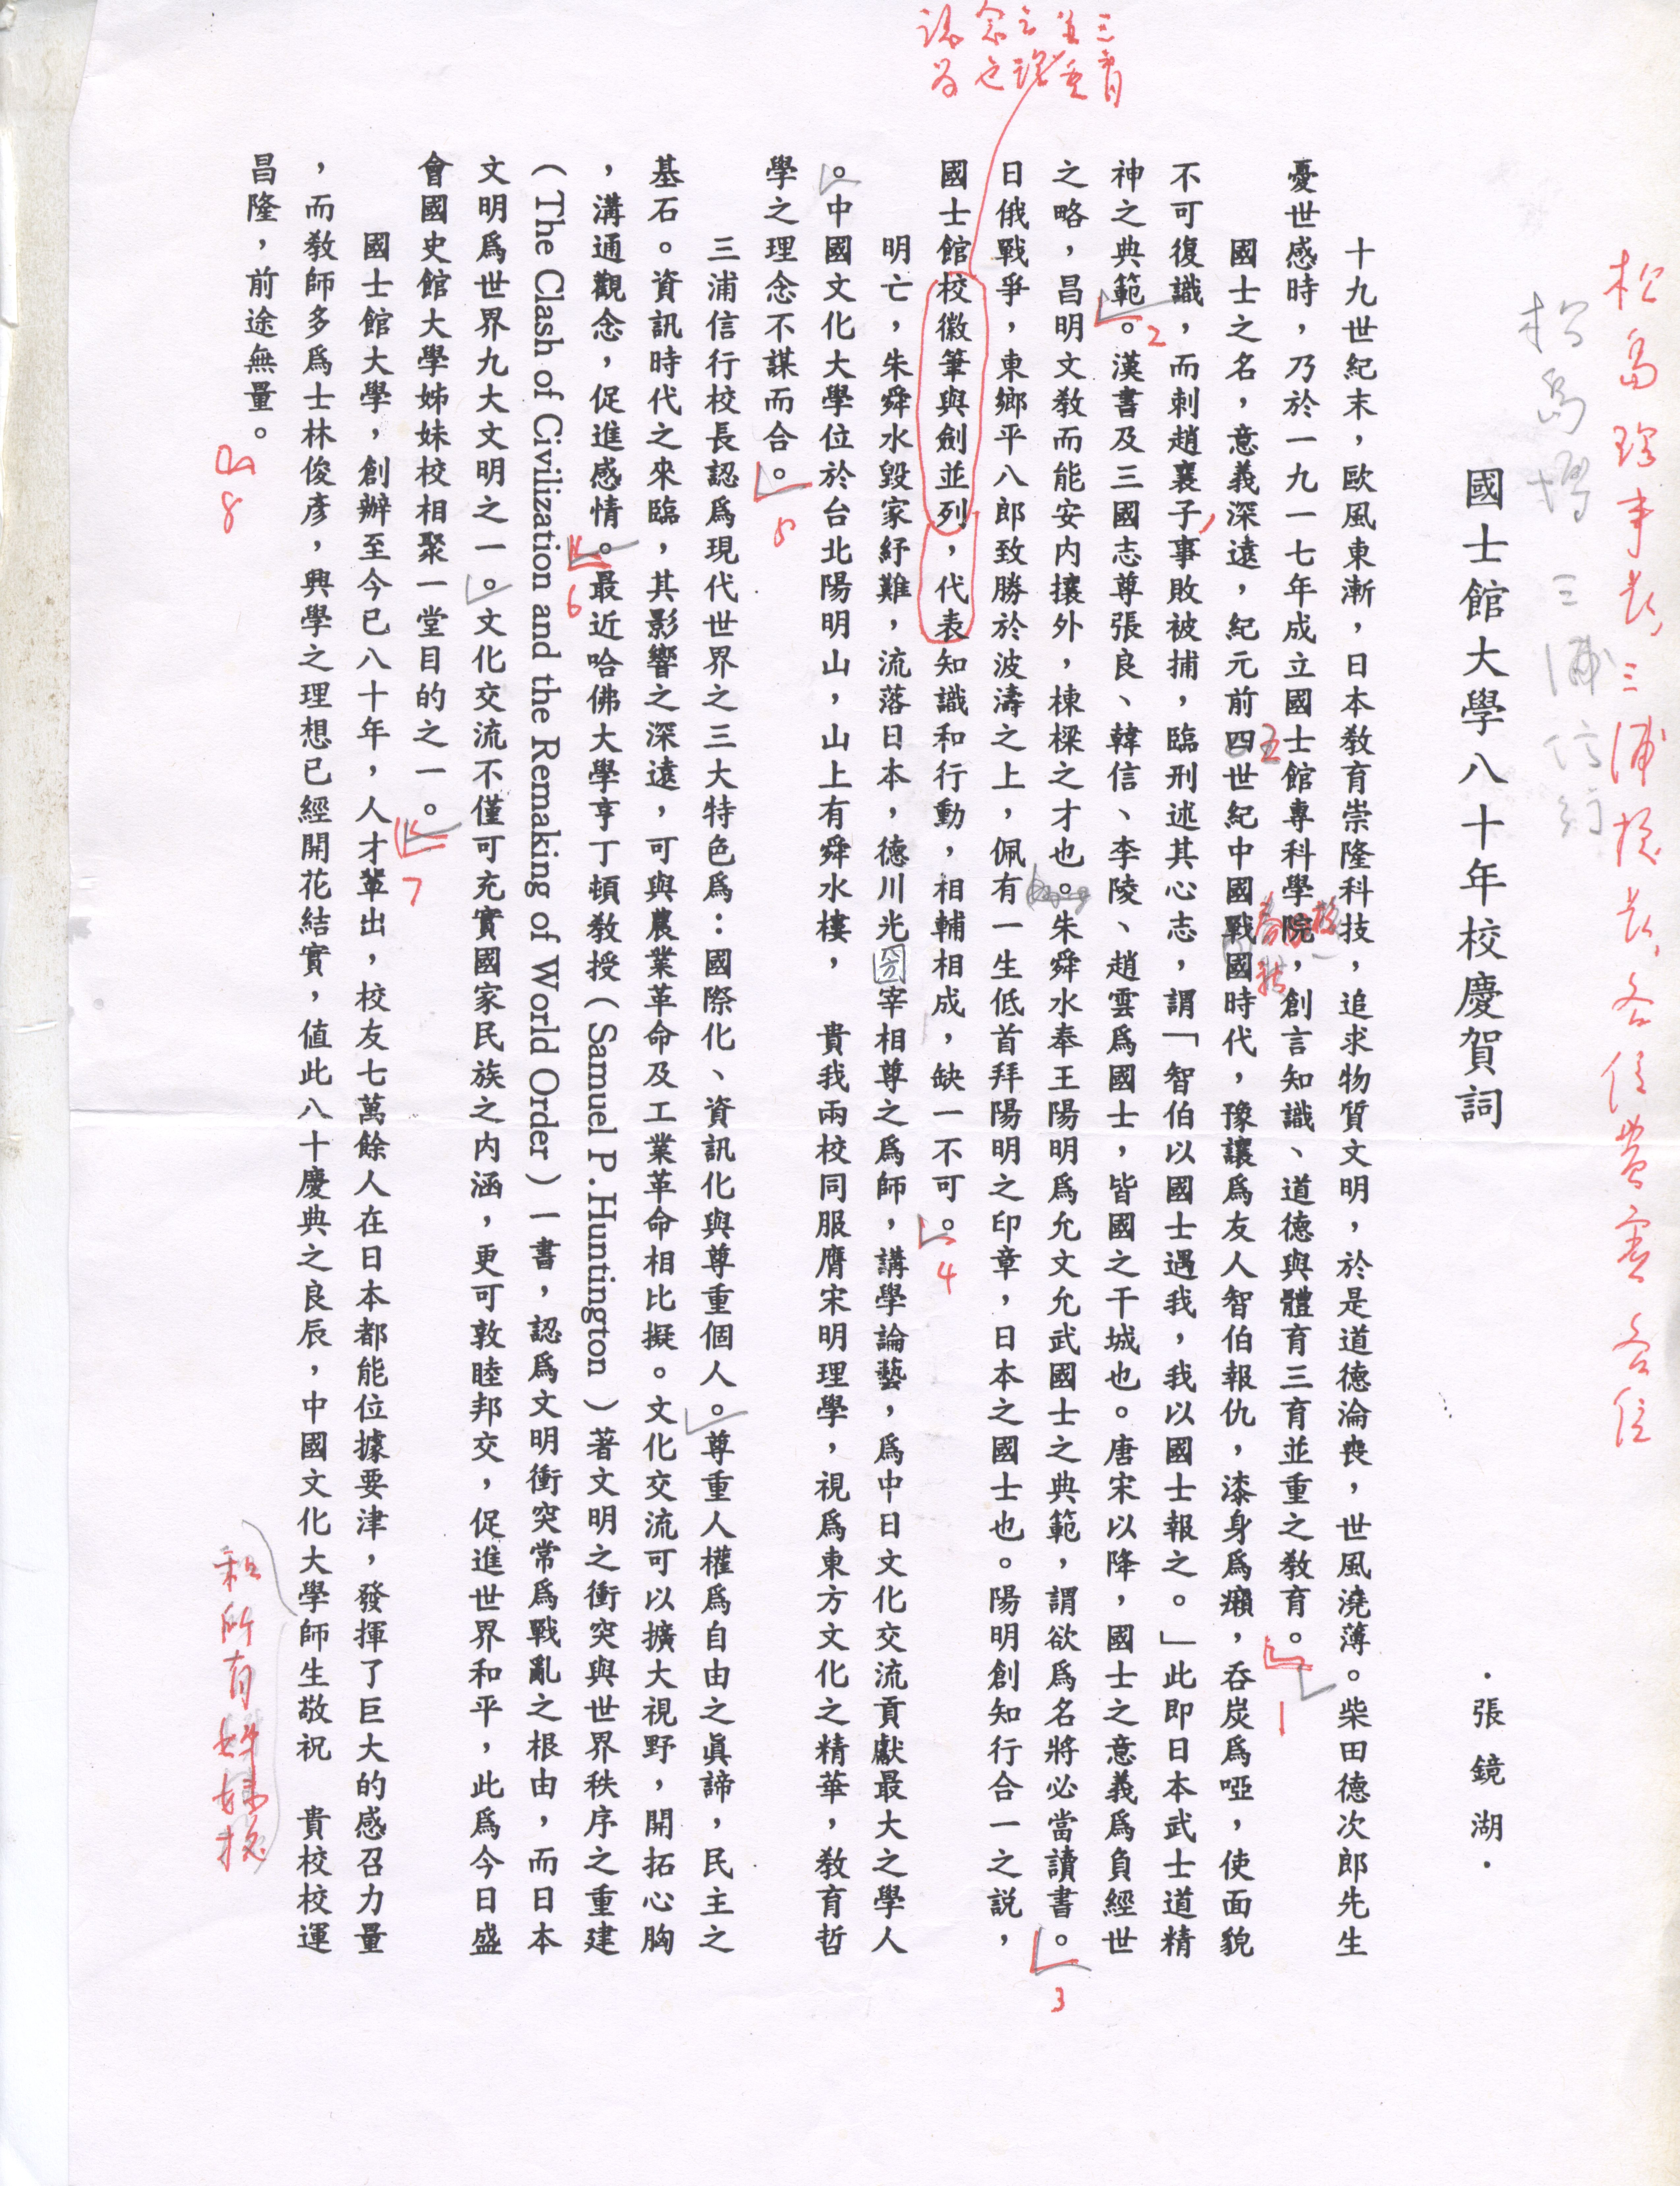 松島理事長、三浦校長、各位貴賓各位
松島博 三浦信行
國士館大學八十年校慶賀詞
·張鏡湖·
十九世紀末，歐風東漸，日本教育崇隆科技，追求物質文明，於是道德淪喪，世風澆薄。柴田德次郎先生
憂世感時，乃於一九一七年成立國士館專科學院，創言知識、道德與體育三育並重之教育。
1
國士之名，意義深遠，紀元前四世紀中國戰國時代，豫讓為友人智伯報仇，漆身為癩，吞炭為啞，使面貌
五
不可復識，而刺趙襄子事敗被捕，臨刑述其心志，謂「智伯以國士遇我，我以國士報之。」此即日本武士道精
神之典範。漢書及三國志尊張良、韓信、李陵、趙雲為國士，皆國之干城也。唐宋以降，國士之意義為負經世
2
之略，昌明文教而能安內攘外，棟樑之才也。朱舜水奉王陽明為允文允武國士之典範，謂欲為名將必當讀書。
3
日俄戰爭，東鄉平八郎致勝於波濤之上，佩有一生低首拜陽明之印章，日本之國士也。陽明創知行合一之說，
國士館校徽筆與劍並列，代表知識和行動，相輔相成，缺一不可。
4
三育
並重
明亡，朱舜水毀家紓難，流落日本，德川光圀宰相尊之為師，講學論藝，為中日文化交流貢獻最大之學人
。中國文化大學位於台北陽明山，山上有舜水樓， 貴我兩校同服膺宋明理學，視為東方文化之精華，教育哲
學之理念不謀而合。
5
三浦信行校長認為現代世界之三大特色為：國際化、資訊化與尊重個人。尊重人權為自由之真諦，民主之
基石。資訊時代之來臨，其影響之深遠，可與農業革命及工業革命相比擬。文化交流可以擴大視野，開拓心胸
，溝通觀念，促進感情。最近哈佛大學亨丁頓教授（Samuel P.Huntington）著文明之衝突與世界秩序之重建
6
（The Clash of Civilization and the Remaking of World Order）一書，認為文明衝突常為戰亂之根由，而日本
文明為世界九大文明之一。文化交流不僅可充實國家民族之內涵，更可敦睦邦交，促進世界和平，此為今日盛
會國史館大學姊妹校相聚一堂目的之一。
7
國士館大學，創辦至今已八十年，人才輩出，校友七萬餘人在日本都能位據要津，發揮了巨大的感召力量
，而教師多為士林俊彥，興學之理想已經開花結實，值此八十慶典之良辰，中國文化大學師生敬祝 貴校校運
和所有姊妹校
昌隆，前途無量。
8